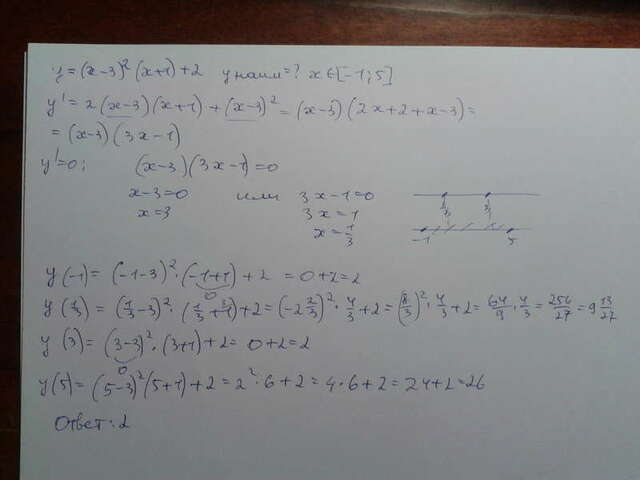 y = (x-3)²(x+1)+2 y наим=? x∈[-1;5]
y' = 2(x-3)(x+1)+(x-3)² = (x-3)(2x+2+x-3)=
= (x-3)(3x-1)
y'=0; (x-3)(3x-1)=0
x-3=0 или 3x-1=0
x=3 3x=1
x=1/3
1/3 3
-1 5
y(-1)= (-1-3)²·(-1+1)+2 = 0+2=2
0
y(1/3)= (1/3-3)²·(1/3+1)+2=(-2 2/3)²·4/3+2=(8/3)²·4/3+2=64/9·4/3=256/27=9 13/27
y(3)= (3-3)²·(3+1)+2= 0+2=2
0
y(5)= (5-3)²(5+1)+2=2²·6+2=4·6+2=24+2=26
Ответ: 2